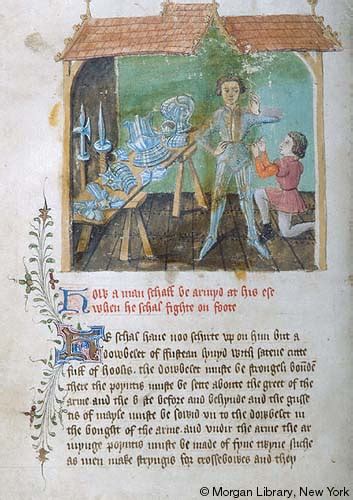 How a man schall be armyd at his ese
when he schal fighte on foote
He schal have noo schirte up on him but a
dowbelet of ffustean lynyd with satene cutte
full of hoolis. the dowbelet must be strongeli boūdē
there the poyntis muste be sette aboute the greet of the
arme and the b ste before and behynde and the gusse
tis of mayle muste be sowid un to the dowbelet in
the bought of the arme. and undir the arme the ar
mynge poyntis muste be made of fyne twyne suche
as men make stryngis for crossebowes and they
© Morgan Library, New York